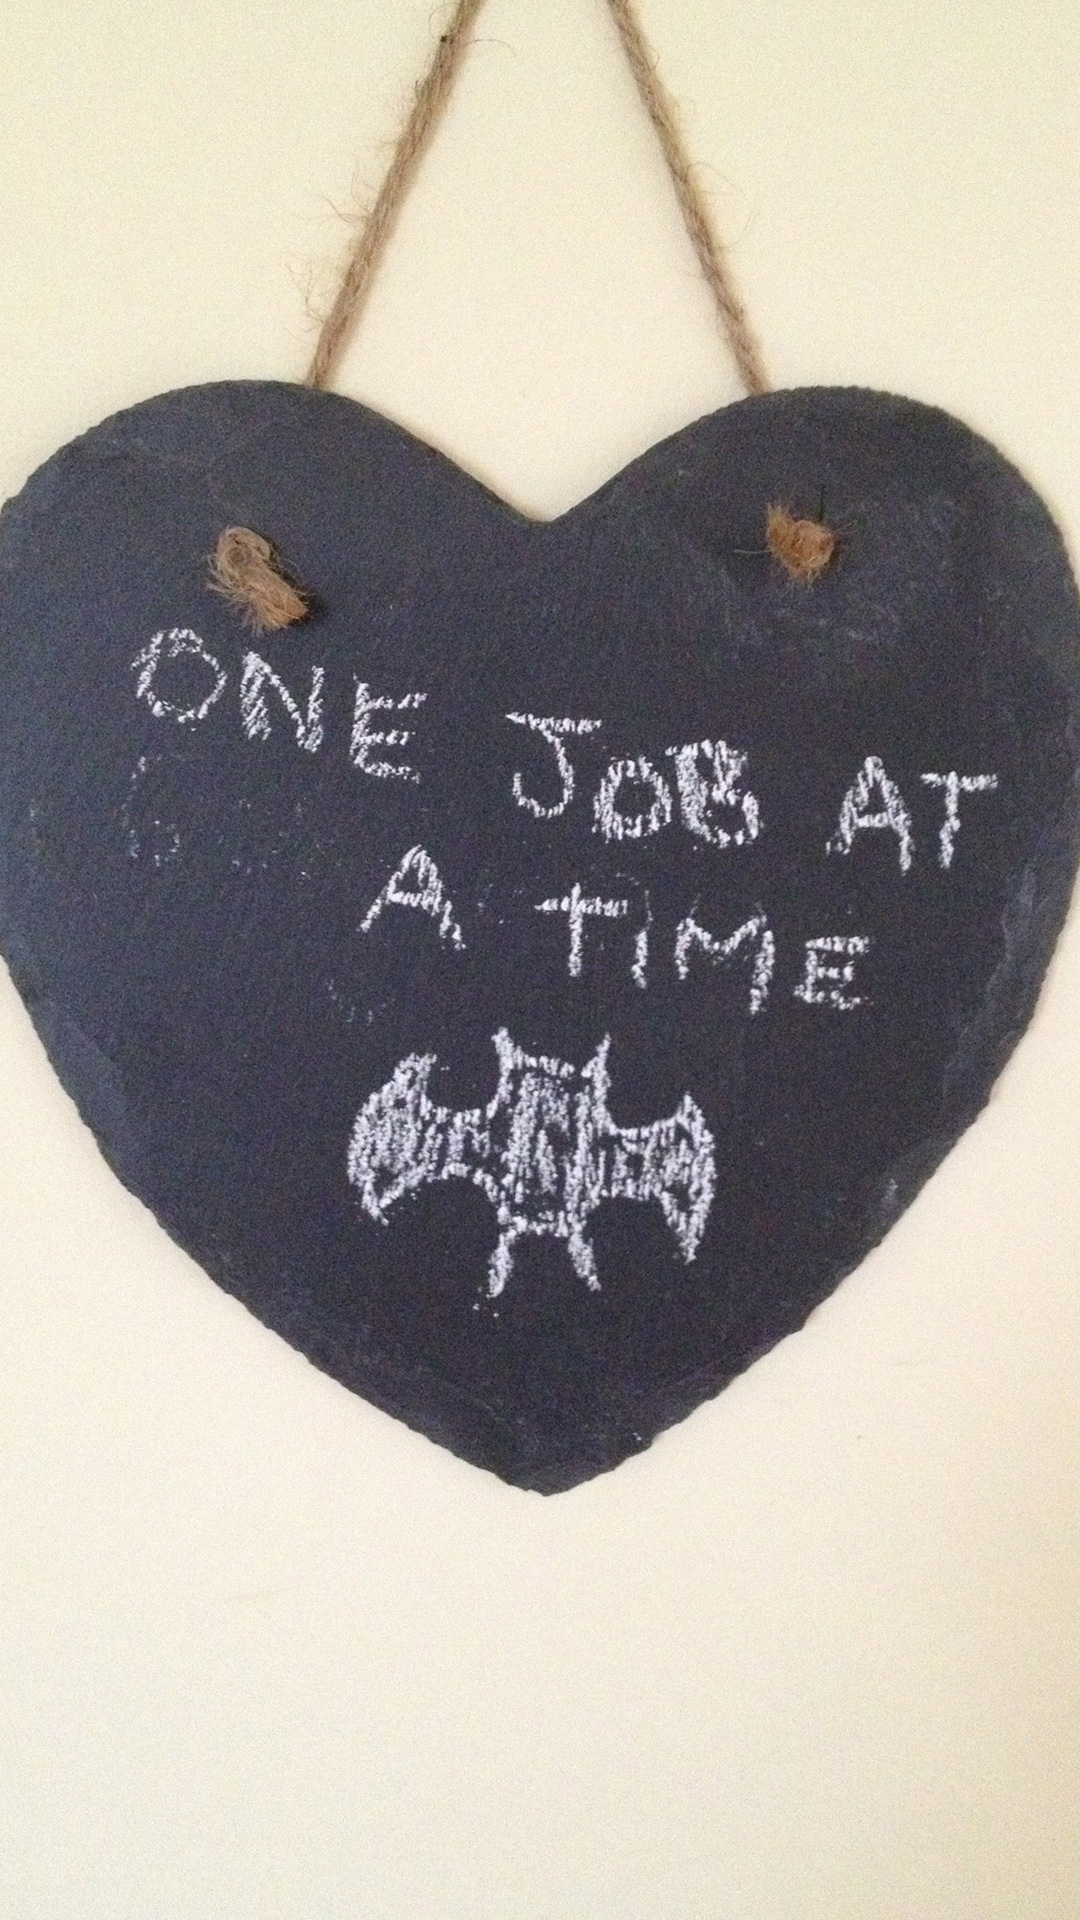 ONE JOB AT
A TIME